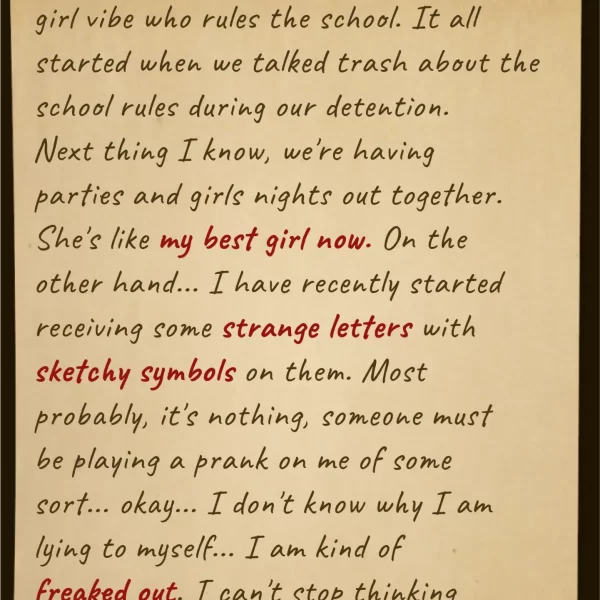 girl vibe who rules the school. It all
started when we talked trash about the
school rules during our detention.
Next thing I know, we're having
parties and girls nights out together.
She's like my best girl now. On the
other hand... I have recently started
receiving some strange letters with
sketchy symbols on them. Most
probably, it's nothing, someone must
be playing a prank on me of some
sort... okay... I don't know why I am
lying to myself... I am kind of
freaked out. I can't stop thinking